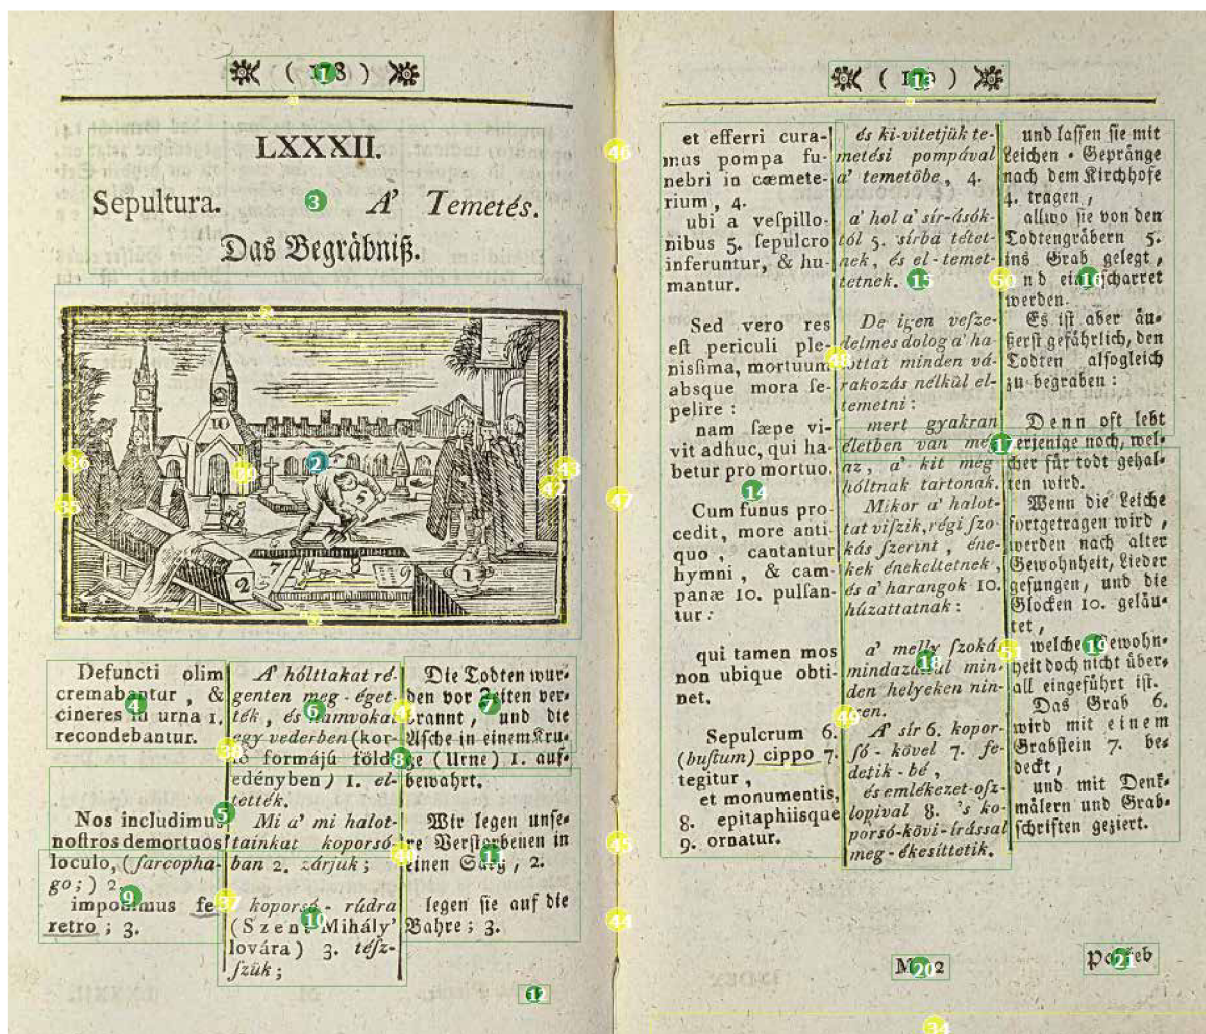 ( 178 )
LXXXII.
Sepultura. A' Temetés.
Das Begräbniß.
Defuncti olim
cremabantur, &
cineres in urna 1.
recondebantur.
Nos includimus
noſtros demortuos
loculo, (ſarcopha-
go;) 2.
imponimus fe-
retro; 3.
A' hólttakat ré-
genten meg-éget-
ték, és hamvokat
egy vederben (kor-
ſó formájú föld-
edényben) 1. el-
tették.
Mi a' mi halot-
tainkat koporsó-
ban 2. zárjuk;
koporsó-rúdra
(Szent Mihály'
lovára) 3. téſz-
ſzük;
Die Todten wur-
den vor Zeiten ver-
brannt, und die
Aſche in einem Kru-
ge (Urne) 1. auf-
bewahrt.
Wir legen unſe-
re Verſtorbenen in
einen Sarg, 2.
legen ſie auf die
Bahre; 3.
( 179 )
et efferri cura-
mus pompa fu-
nebri in cæmete-
rium, 4.
ubi a veſpillo-
nibus 5. ſepulcro
inferuntur, & hu-
mantur.
Sed vero res
eſt periculi ple-
niſſima, mortuum
absque mora ſe-
pelire:
nam ſæpe vi-
vit adhuc, qui ha-
betur pro mortuo.
Cum funus pro-
cedit, more anti-
quo, cantantur
hymni, & cam-
panæ 10. pulſan-
tur:
qui tamen mos
non ubique obti-
net.
Sepulcrum 6.
(buſtum) cippo 7.
tegitur,
et monumentis,
8. epitaphiisque
9. ornatur.
és ki-vitetjük te-
metési pompával
a' temetöbe, 4.
a' hol a' sír-ásók-
tól 5. sírba tétet-
nek, és el-temet-
tetnek.
De igen veſze-
delmes dolog a' ha-
lottat minden vá-
rakozás nélkül el-
temetni:
mert gyakran
életben van még
az, a' kit még
hóltnak tartonak.
Mikor a' halot-
tat viſzik, régi ſzo-
kás ſzerint, éne-
kek énekeltetnek,
és a' harangok 10.
húzattatnak:
a' melly ſzokás
mindazáltal min-
den helyeken nin-
csen.
A' sír 6. kopor-
ſó-kövel 7. fe-
detik-bé,
és emlékezet-oſz-
lopival 8. 's ko-
porsó-kövi-írással
meg-ékesíttetik.
und laſſen ſie mit
Leichen-Gepränge
nach dem Kirchhofe
4. tragen,
allwo ſie von den
Todtengräbern 5.
ins Grab gelegt,
und eingeſcharret
werden.
Es iſt aber äu-
ßerſt gefährlich, den
Todten alſogleich
zu begraben:
Denn oft lebt
derjenige noch, wel-
cher für todt gehal-
ten wird.
Wenn die Leiche
fortgetragen wird,
werden nach alter
Gewohnheit, Lieder
geſungen, und die
Glocken 10. geläu-
tet,
welche Gewohn-
heit doch nicht über-
all eingeführt iſt.
Das Grab 6.
wird mit einem
Grabſtein 7. be-
deckt,
und mit Denk-
mälern und Grab-
ſchriften geziert.
M 2